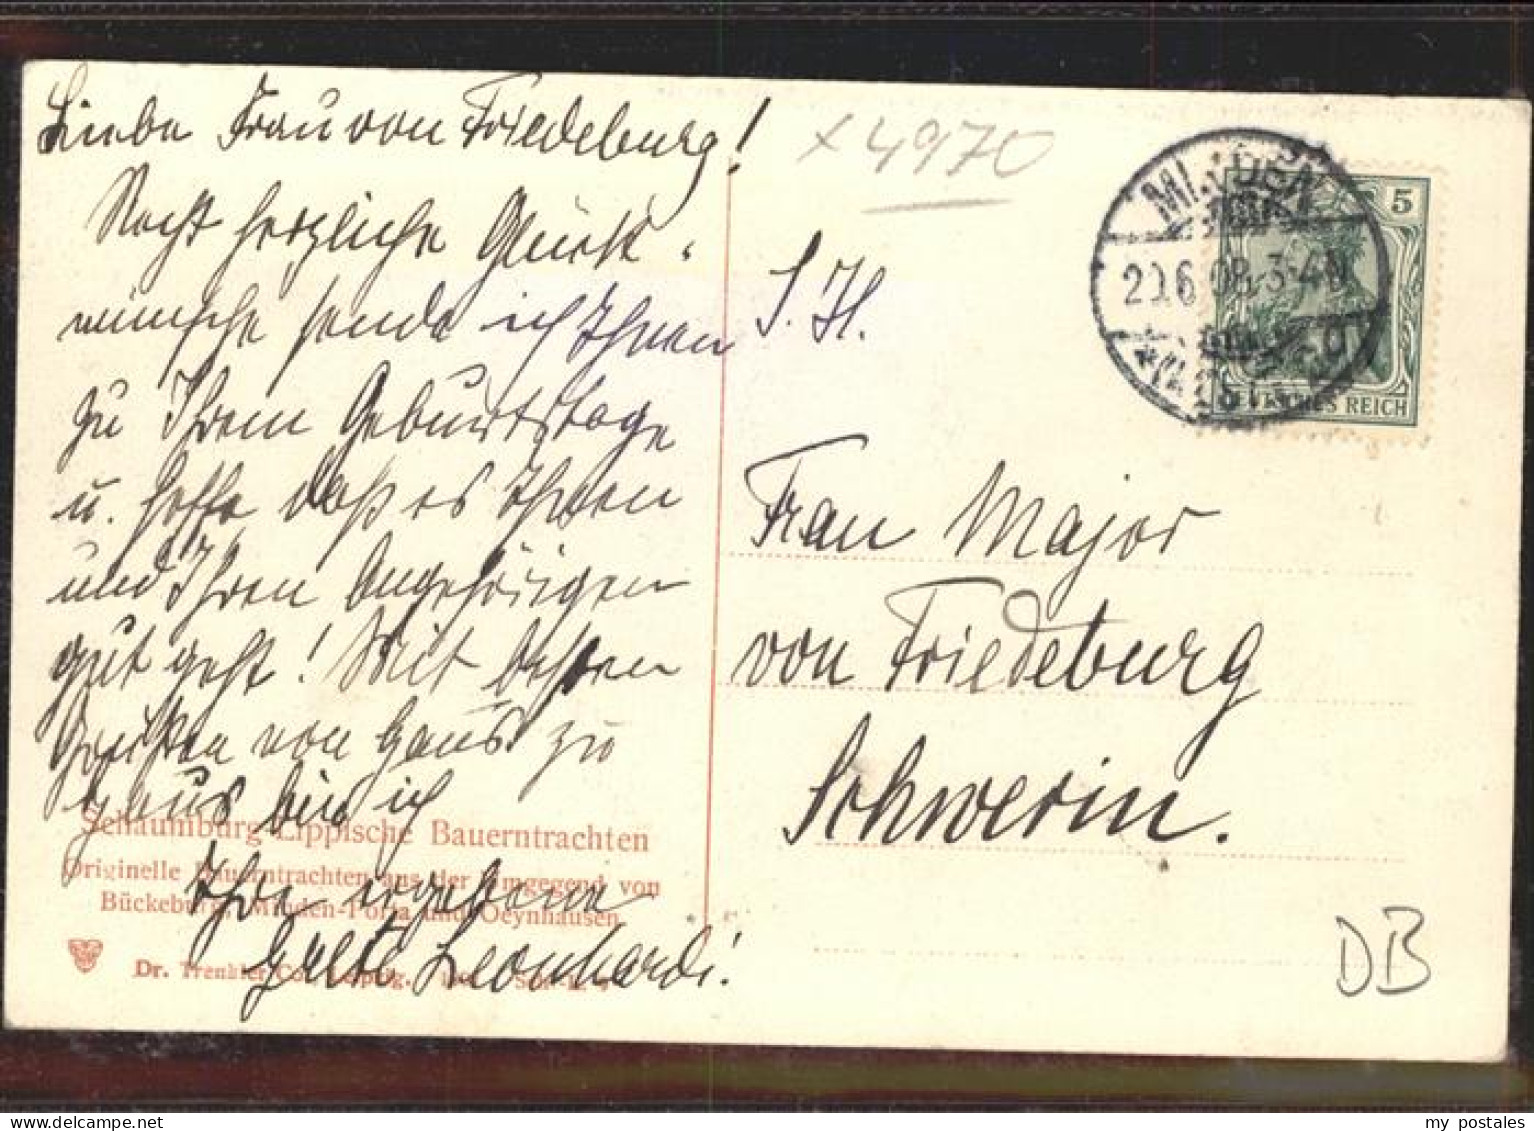 Liebe Frau von Friedeburg!
Recht herzliche Glück-
wünsche sende ich Ihnen
zu Ihrem Geburtstage
u. hoffe daß es Ihnen
und Ihren Angehörigen
gut geht! Mit besten
Grüßen von Haus zu
Haus bin ich
Ihre ergebene
Grete Leonhardi.
Schaumburg-Lippische Bauerntrachten
Originelle Bauerntrachten aus der Umgegend von
Bückeburg, Minden-Porta und Oeynhausen
Dr. Trenkler Co., Leipzig.
x 4970
S. H.
MINDEN
20.6.08.3-4N
5
DEUTSCHES REICH
Frau Major
von Friedeburg
Schwerin.
DB
my postales